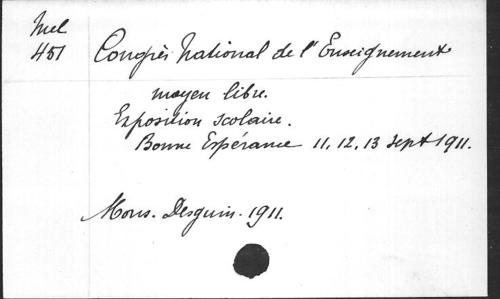 Mel
451
Congrès National de l'Enseignement
moyen libre.
Exposition scolaire.
Bonne Espérance 11, 12, 13 sept 1911.
Mons. Desguin. 1911.